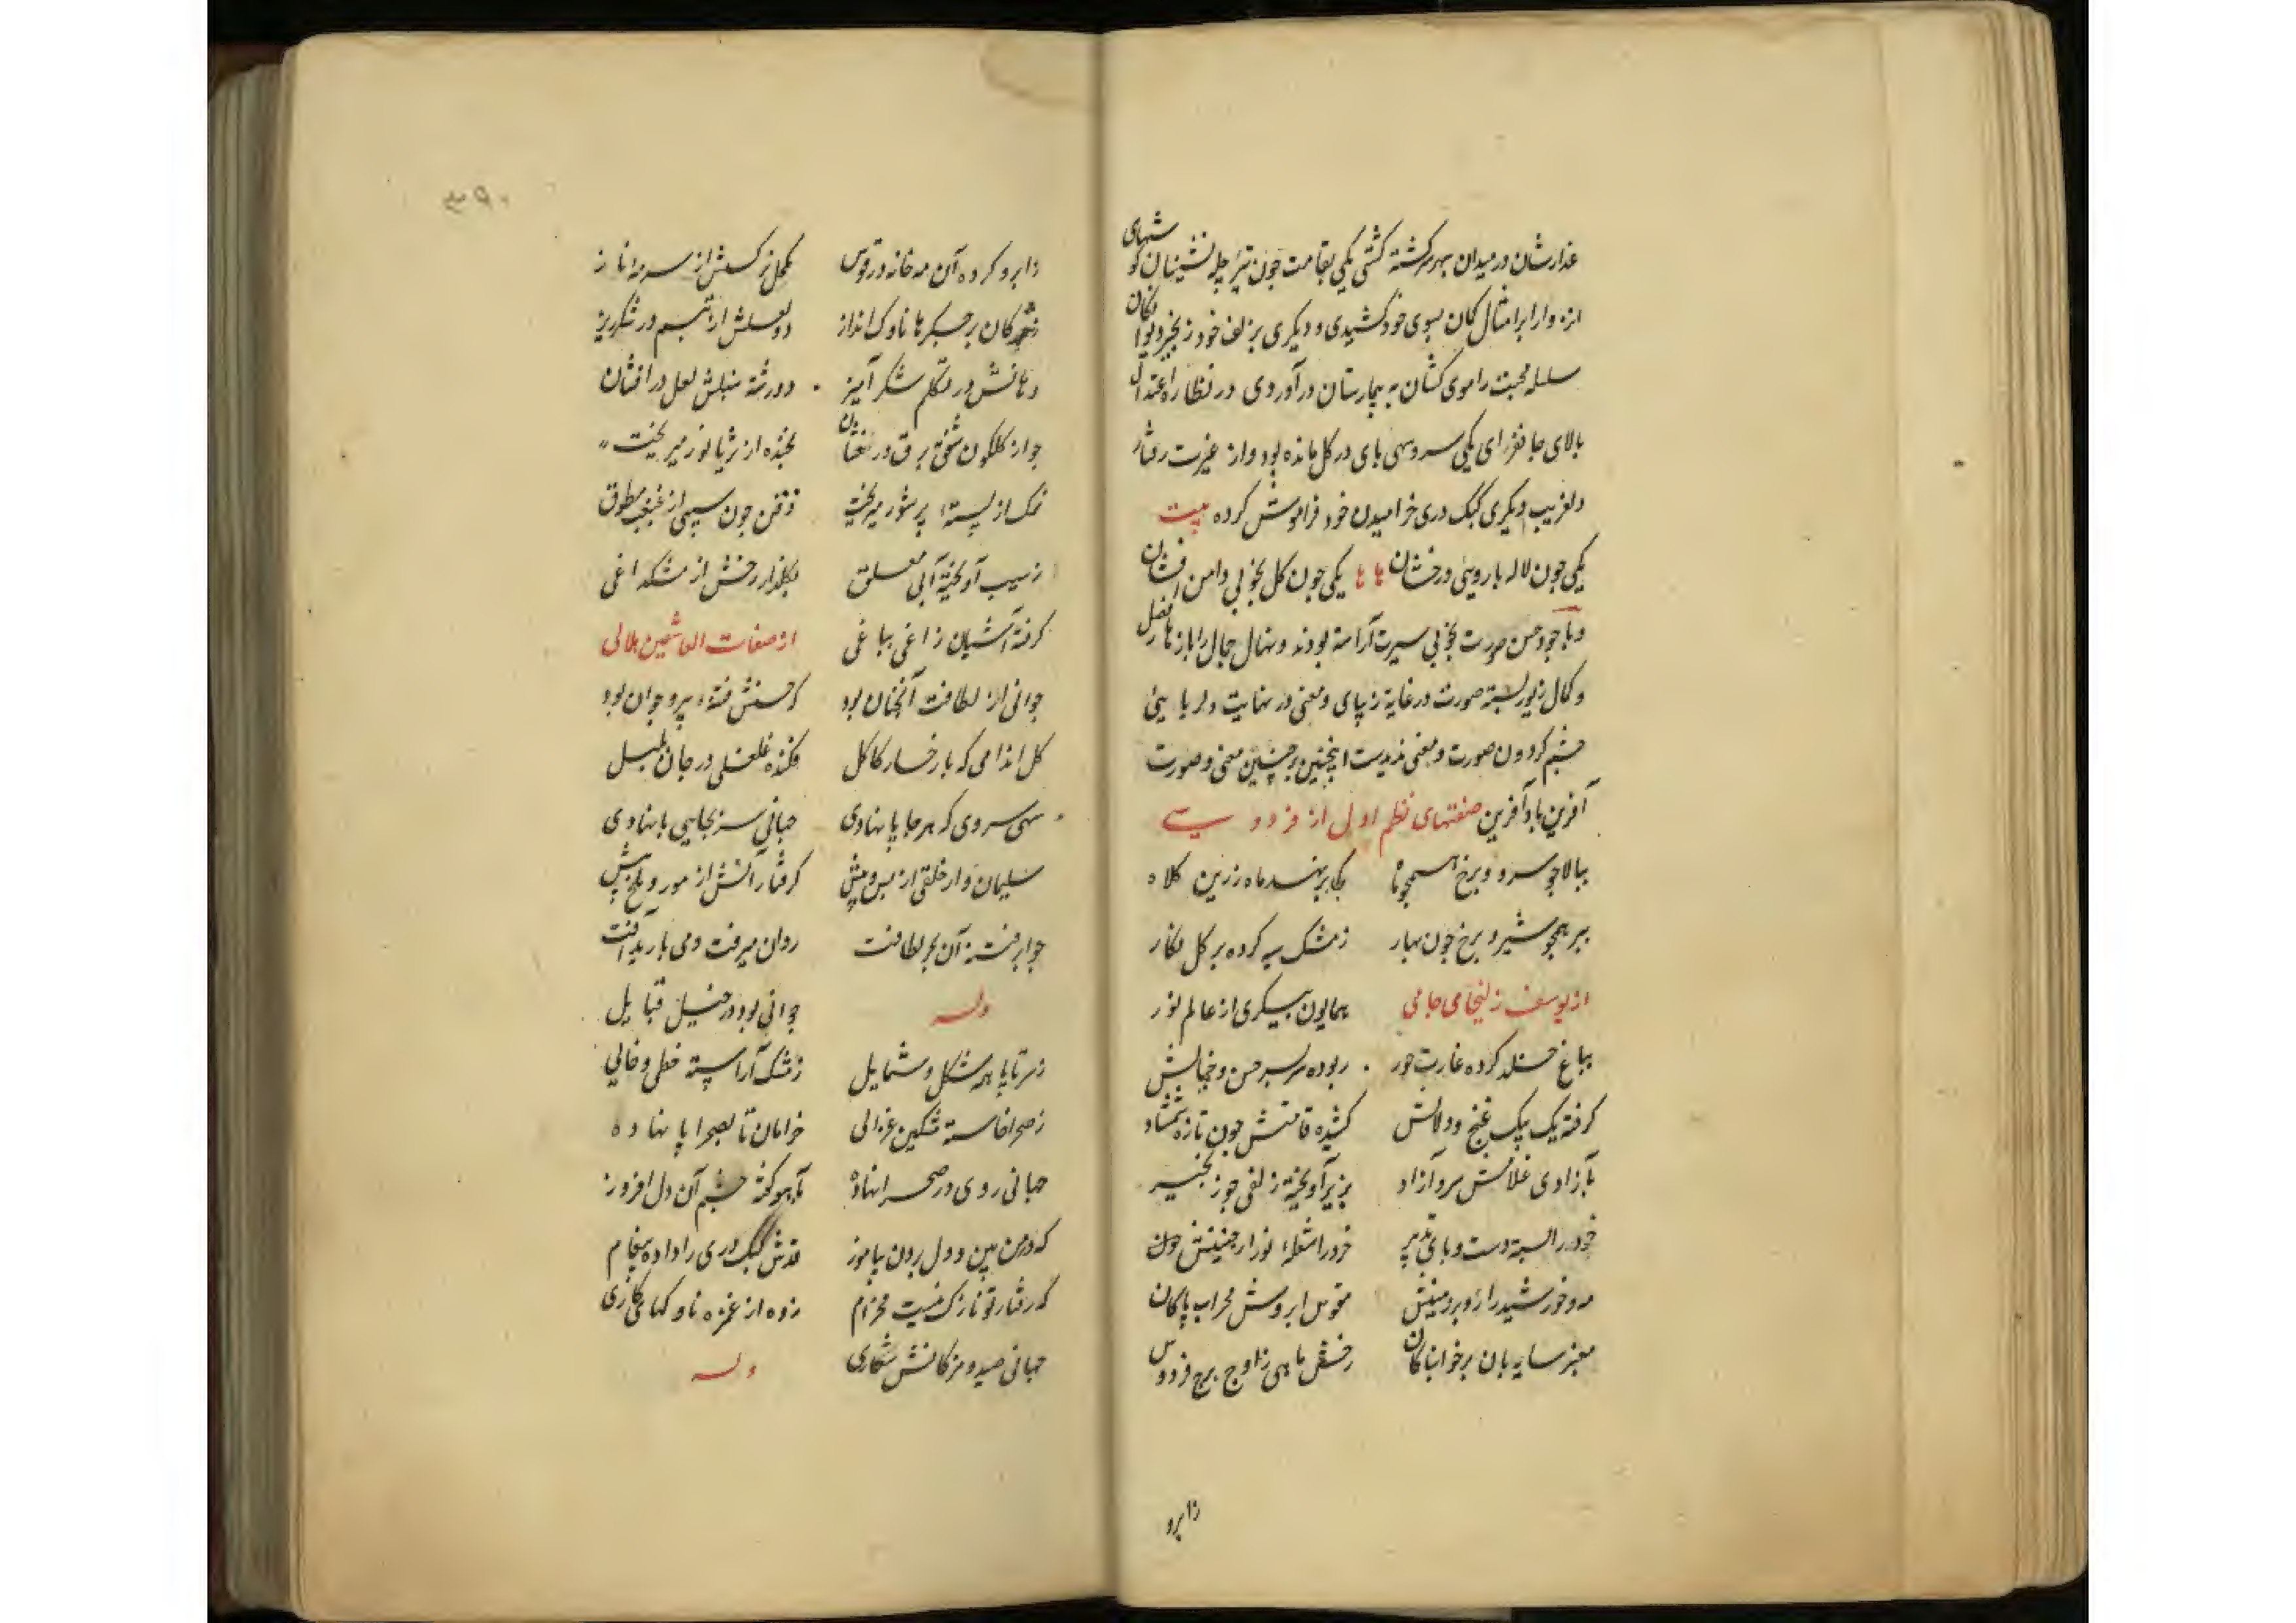 عذارشان در میدان بهر سرکشته کشتی یکی بقامت چون تیر چله نشینان کوشهای
انزوا را بر امثال کمان بسوی خود کشیدی و دیگری بزلف خود زنجیر دیوانکان
سلسله محبت را موی کشان به بیمارستان درآوردی در نظاره اعتدال
بالای جانفزای یکی سرو سهی پای در کل مانده بود و از غیرت رفتار
دلفریب دیگری کبک دری خرامیدن خود فراموش کرده بیت
یکی چون لاله با رویی درخشان ها ها یکی چون کل بخوبی دامن افشان
و با وجود حسن صورت بخوبی سیرت آراسته بودند و نهال جمال را بازهار فضل
و کمال زیور بسته صورت در غایة زیبای و معنی در نهایت دلربایی
چشم کردون صورت و معنی ندیدست اینچنین بر چنین معنی و صورت
آفرین باد آفرین صفتهای نظم اول از فردوسی
ببالا چو سرو و برخ همچو ماه یکی بر نهند ماه زرین کلاه
ببر همچو شیر و برخ چون بهار ز مشک سیه کرده بر کل نکار
از یوسف زلیخای جامی همایون پیکری از عالم نور
بباغ خلد کرده غارت حور ربوده سر بسر حسن و جمالش
کرفته یک بیک غنج و دلالش کشیده قامتش چون تازه شمشاد
بآزادی غلامش سرو آزاد بزیر آویخته زلفی چو زنجیر
خرد را بسته دست و پای تدبیر فروزان شعله نور از جبینش
مه و خورشید را رو بر زمینش مقوس ابروش محراب پاکان
معنبر سایه بان بر خوابناکان رخش ماهی ز اوج برج فردوس
زابرو
۳۹۰
زابرو کرده آن مه خانه در قوس مکحل نرکسش از سرمه ناز
ز مژکان بر جکرها ناوک انداز دو لعلش از تبسم در شکرریز
دهانش در تکلم شکر آمیز دو رشته سنبلش لعل در افشان
چو از کلکون شفق برق درخشان بخنده از ثریا نور میریخت
نمک از پسته پر شور میریخت ذقن چون سیبی از غبغب مطوق
ز سیب آویخته آبی معلق بکلزار رخش از مشک داغی
کرفته آشیان زاغی بباغی از صفات العاشقین هلالی
جوانی از لطافت آنچنان بود که حسنش فتنه پیر و جوان بود
کل اندامی که با رخسار کاکل فکنده غلغلی در جان بلبل
سهی سروی که هر جا پا نهادی جهانی سر بجایی پا نهادی
سلیمان وار خلقی از پس و پیش کرفتارانش از مور و ملخ بیش
چو ابر فتنه آن بحر لطافت روان میرفت و می بارید آفت
وله جوانی بود در خیل قبایل
ز سر تا پا همه شکل و شمایل ز مشک آراسته خطی و خالی
ز صحرا خاسته مشکین غزالی خرامان تا بصحرا پا نهاده
جهانی روی در صحرا نهاده بآهو کفته چشم آن دل افروز
که در من بین و دل بردن بیاموز قدش کبک دری را داده پیغام
که رفتار تو نازک نیست مخرام زده از غمزه ناوکهای کاری
جهانی صید و مژکانش شکاری وله